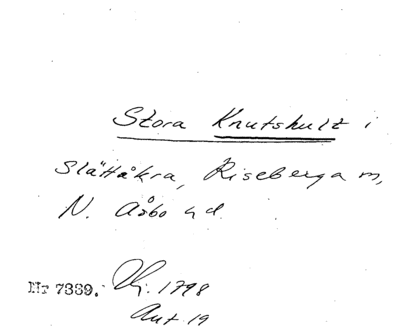 Stora Knutshult i
Slättåkra, Riseberga m,
N. Åsbo hd.
Nr 7339. 1798
Aut. 19